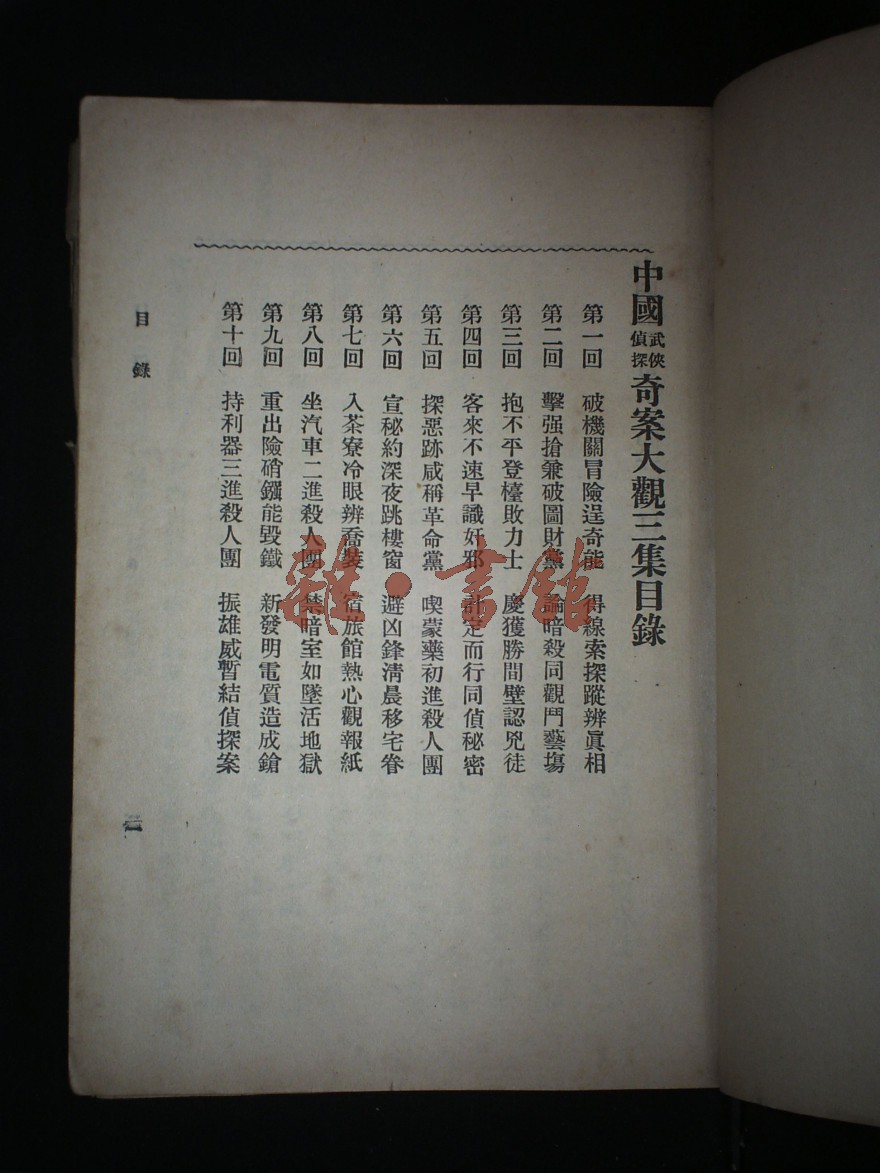 中國武俠偵探奇案大觀三集目錄
第一回 破機關冒險逞奇能 得線索探蹤辨眞相
第二回 擊强搶兼破圖財黨 論暗殺同觀鬥藝塲
第三回 抱不平登檯敗力士 慶獲勝間壁認兇徒
第四回 客來不速早識奸邪 計定而行同偵秘密
第五回 探惡跡咸稱革命黨 喫蒙藥初進殺人團
第六回 宣秘約深夜跳樓窗 避凶鋒淸晨移宅眷
第七回 入茶寮冷眼辨喬裝 宿旅館熱心觀報紙
第八回 坐汽車二進殺人團 禁暗室如墜活地獄
第九回 重出險硝鏹能毀鐵 新發明電質造成鎗
第十回 持利器三進殺人團 振雄威暫結偵探案
目錄
雜·書館